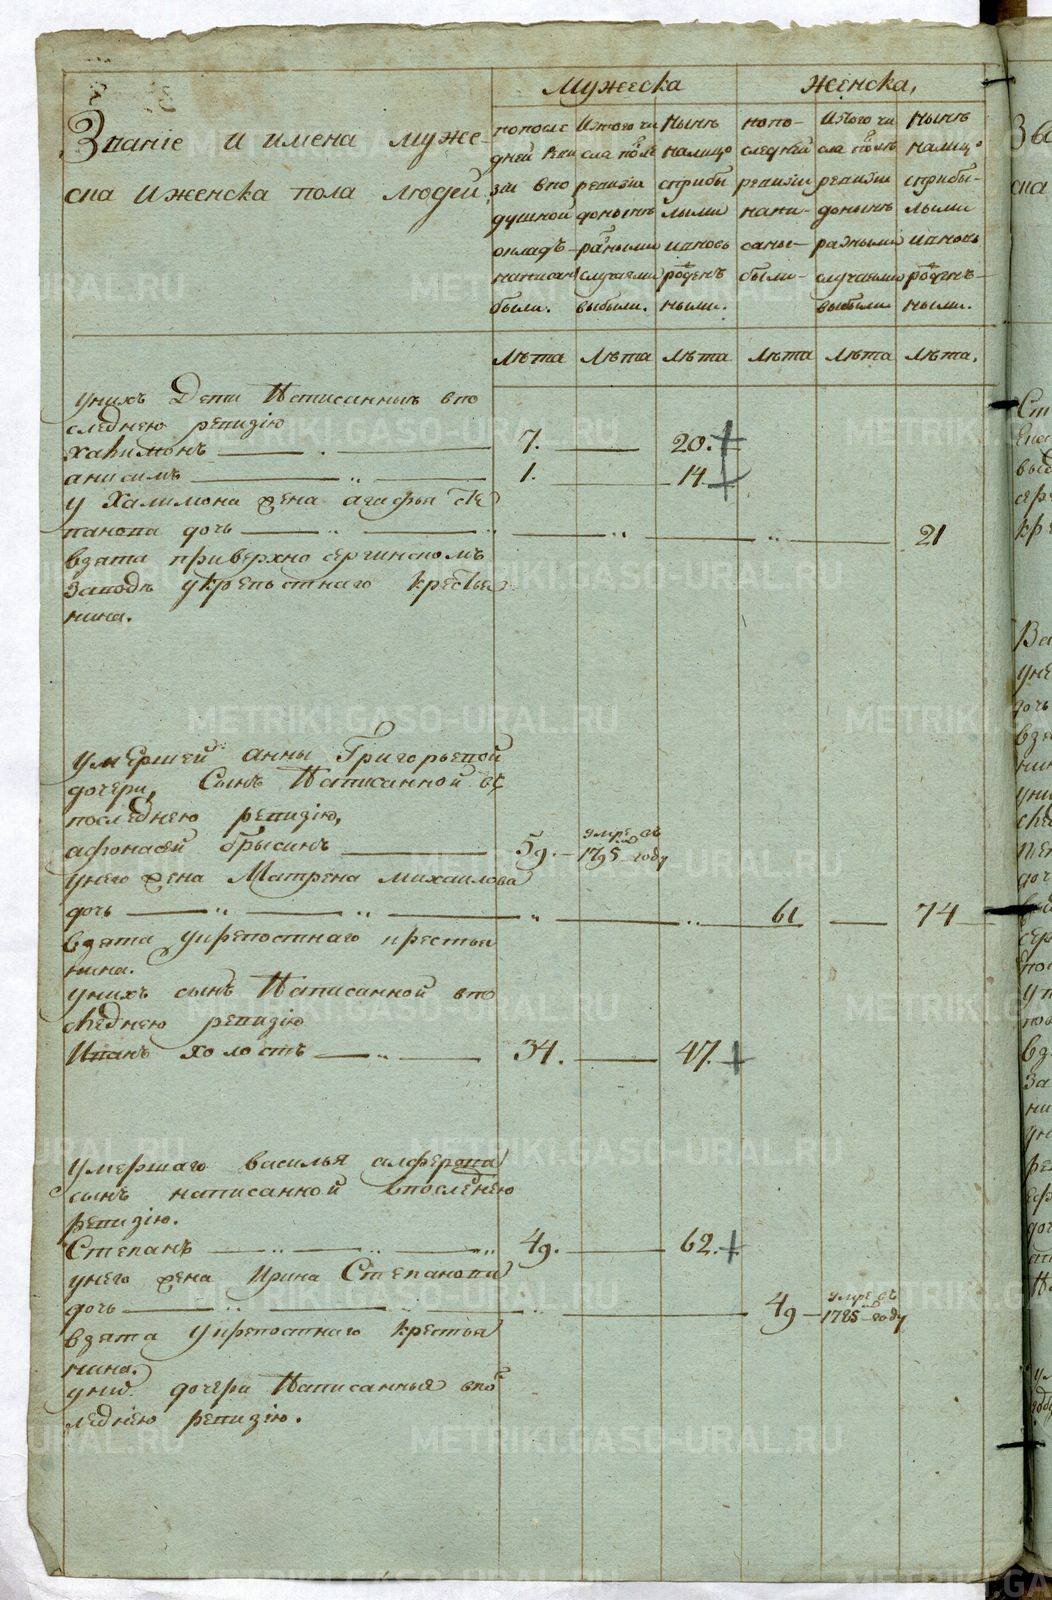 Мужеска
Женска,
Званіе и имена муже-
ска И женска пола людей
попосле
дней реви
зіи впо
душной
окладъ
написан
были.
Итого чи
сла после
ревизіи
донынѣ
разными
случаями
выбыли.
Нынѣ
налицо
сприбы
лыми
ивновь
рожден
ными.
попо-
следней
ревизіи
напи-
саны-
были-
Итого чи
сла послѣ
ревизіи
донынѣ
разными
случаями
выбыли
Нынѣ
налицо
сприбы-
лыми
ивновь
рожден-
ными.
лѣта лѣта лѣта лѣта лѣта лѣта,
унихъ Дети Написанныи впо
следнею ревизію
халимонъ 7. 20.
анисимъ 1. 14
у Халимона жена агафья сте
панова дочь 21
взята приверхно сергинскомъ
заводѣ укрепостнаго крестья
нина.
умершей анны Григорьевой
дочери, Сынъ Написанной въ
последнею ревизію,
афонасей брысинъ 59. умре въ 1795 году
унего жена Матрена михаилова
дочь 61 74
взята укрепостнаго крестья
нина.
унихъ сынъ Написанной впо
следнею ревизію
Иванъ холостъ 34. 47.
умершаго василья алферова
сынъ написанной впоследнею
ревизію.
Степанъ 49. 62.
унего жена Ирина Степанова
дочь 49 умре въ 1785 году
взята укрепостнаго крестья
нина.
униχ дочери Написанныя впо
следнею ревизію.
METRIKI.GASO-URAL.RU